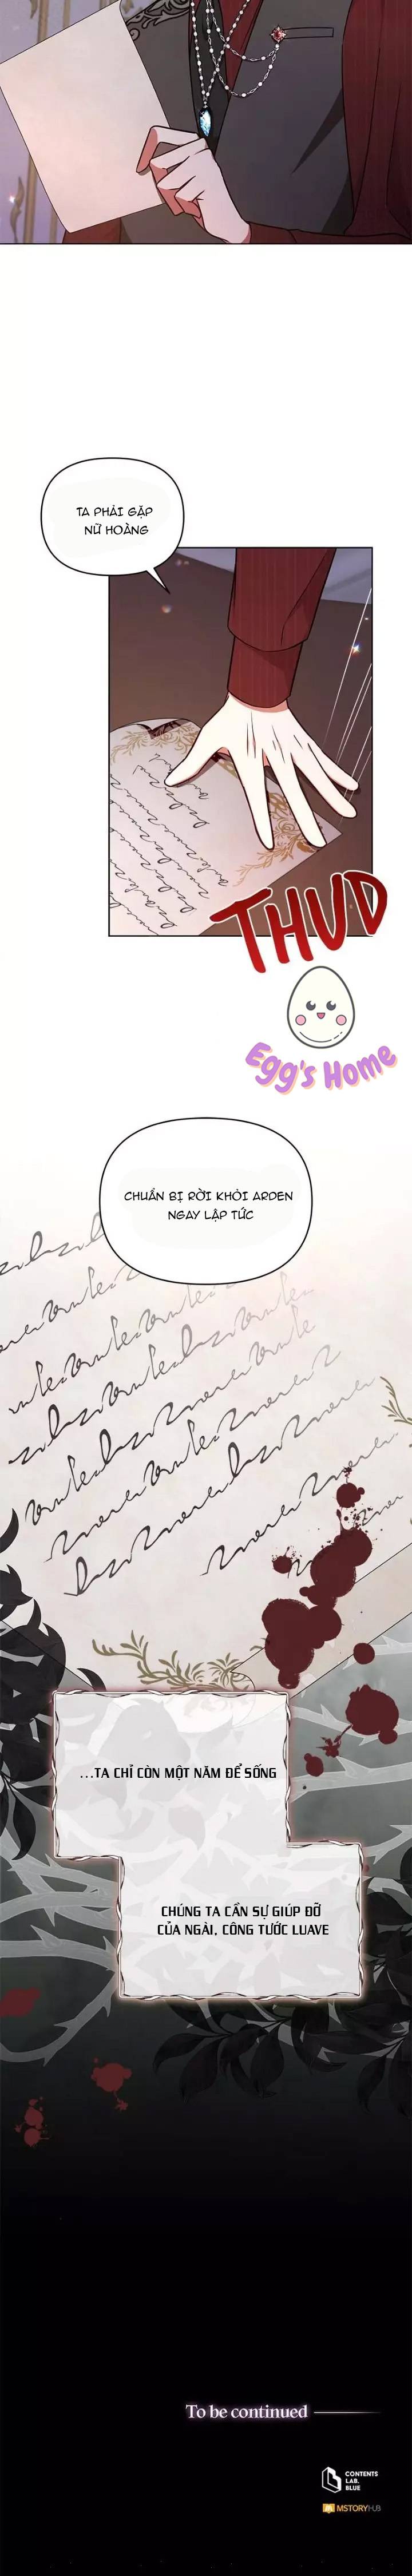 TA PHẢI GẶP
NỮ HOÀNG
THUD
Egg's Home
CHUẨN BỊ RỜI KHỎI ARDEN
NGAY LẬP TỨC
...TA CHỈ CÒN MỘT NĂM ĐỂ SỐNG
CHÚNG TA CẦN SỰ GIÚP ĐỠ
CỦA NGÀI, CÔNG TƯỚC LUAVE
To be continued
CONTENTS
LAB.
BLUE
MSTORYHUB